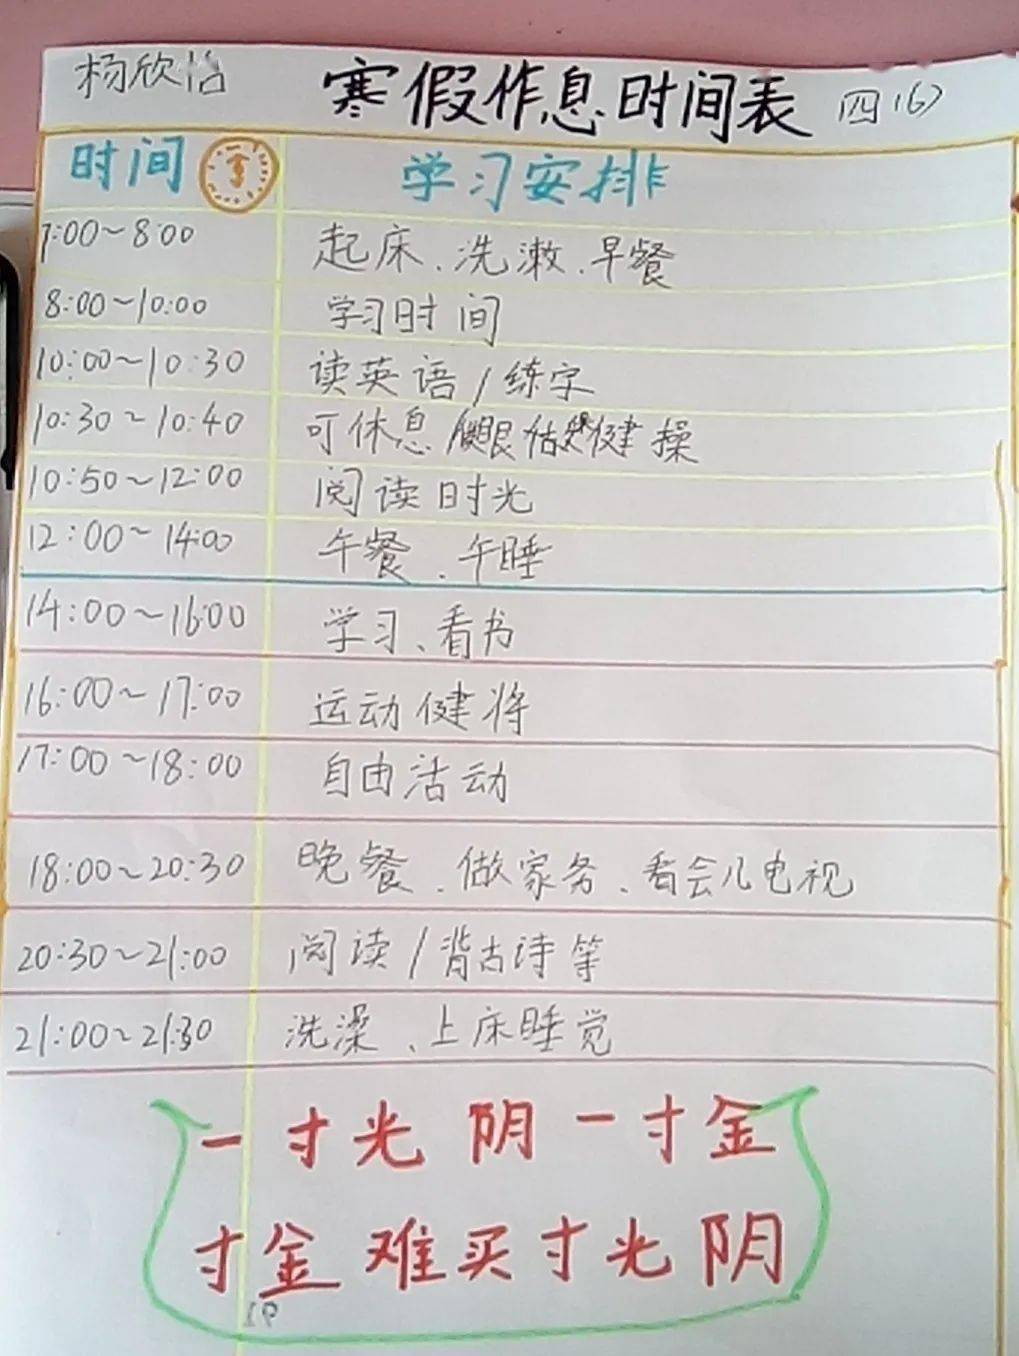 杨欣怡 寒假作息时间表 四(6)
时间 学习安排
7:00~8:00 起床、洗漱、早餐
8:00~10:00 学习时间
10:00~10:30 读英语/练字
10:30~10:40 可休息/ 眼 健操
10:50~12:00 阅读时光
12:00~14:00 午餐、午睡
14:00~16:00 学习、看书
16:00~17:00 运动健将
17:00~18:00 自由活动
18:00~20:30 晚餐、做家务、看会儿电视
20:30~21:00 阅读/背古诗等
21:00~21:30 洗澡、上床睡觉
一寸光阴一寸金
寸金难买寸光阴